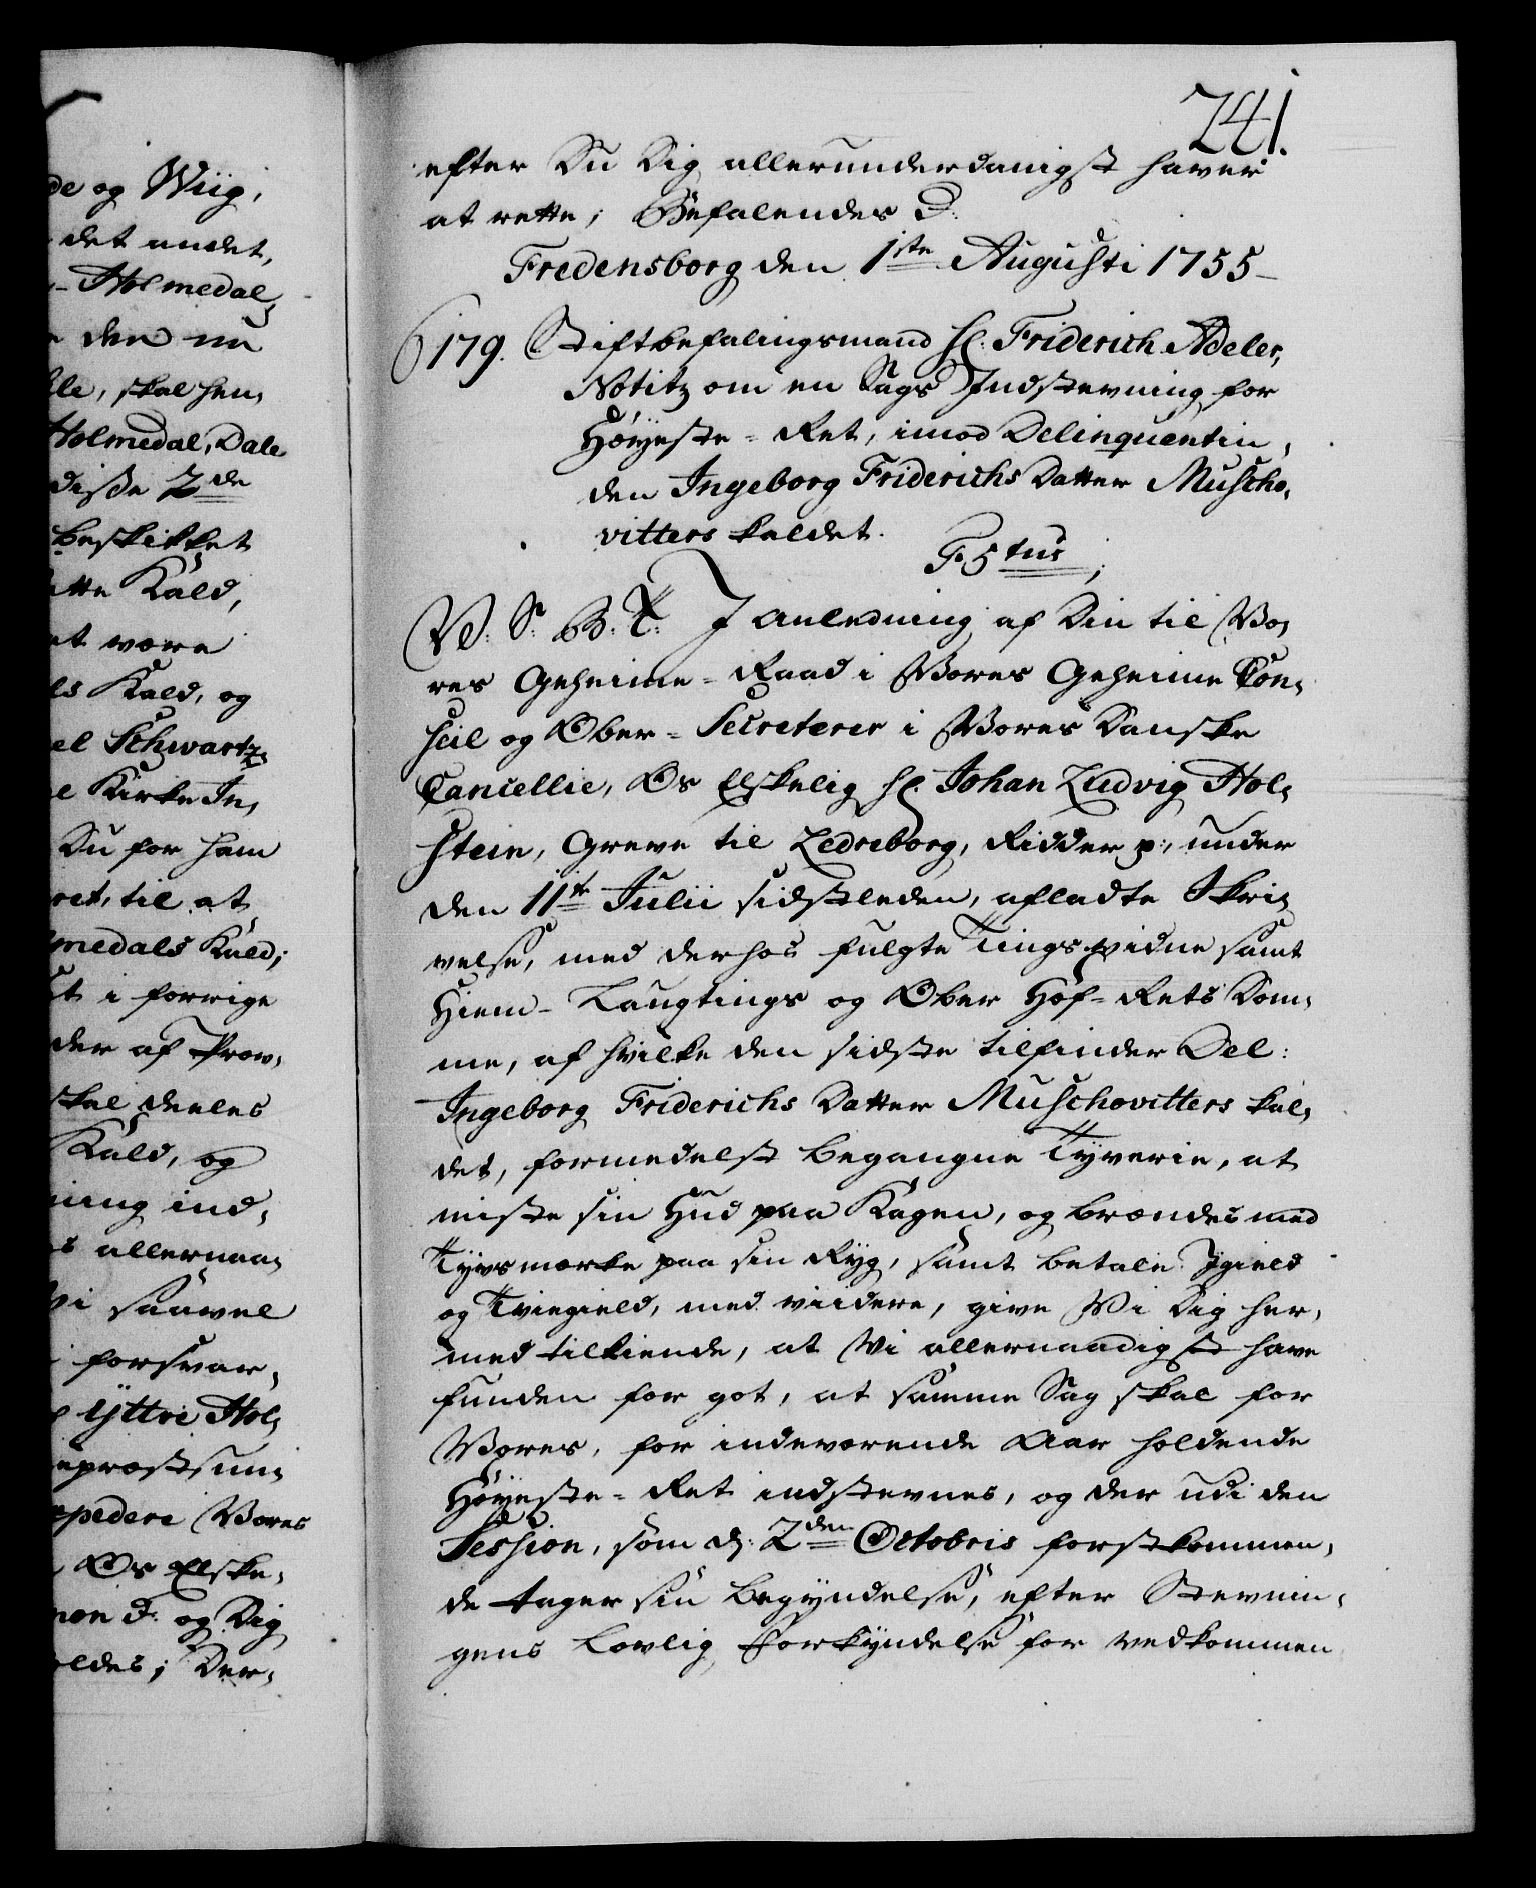 de og Wiig,
det andet,
Holmedal,
den nu
le, skal hen,
Holmedal, Dale
disse 2de
beskikket
tte Kald,
at være
ls Kald, og
el Schwartz,
e Kirke In,
Du for ham
ret, til at
medals Kald;
t i forrige
der af Prov,
skal deeles
Kald, og
ning ind,
s allernaa,
Vi saavel
forsvar,
Yttre Hol,
epræst sum,
xpedere Vores
Os Elske,
og Dig
oldes; Der,
241.
efter Du Dig allerunderdanigst haver
at rette; Befalendes D:
Fredensborg den 1ste Augusti 1755
179. Stiftbefalingsmand Hr: Friderich Adeler,
Notitz om en Sags Indstevning for
Høyeste-Ret, imod Delinquentin,
den Ingeborg Friderichs Datter Muscho,
vitters kaldet.
F: 5tus;
V: S: G: T: I Anledning af Din til Vo,
res Geheime-Raad i Vores Geheime Con,
seil og Ober-Secreterer i Vores Danske
Cancellie, Os Elskelig Hr: Johan Ludvig Hol,
stein, Greve til Ledreborg, Ridder p:, under
den 11te Julii sidstleden, afladte Skri,
velse, med derhos fulgte Tings vidne samt
Hiem-Laugtings og Ober Hof-Rets Dom,
me, af hvilke den sidste tilfinder Del:
Ingeborg Friderichs Datter Muschovitters kal,
det, formedelst begangne Tyverie, at
miste sin Hud paa Kagen, og brændes med
Tyvsmærke paa sin Ryg, samt betale Igield
og Tviegield, med viidere, give Vi Dig her,
med tilkiende, at Vi allernaadigst have
funden for got, at samme Sag skal for
Vores, for indeværende Aar holdende
Høyeste-Ret indstevnes, og der udi den
Session, som d: 2den Octobris førstkommen,
de tager sin Begyndelse, efter Stevnin,
gens Lovlig Forkyndelse for vedkommen